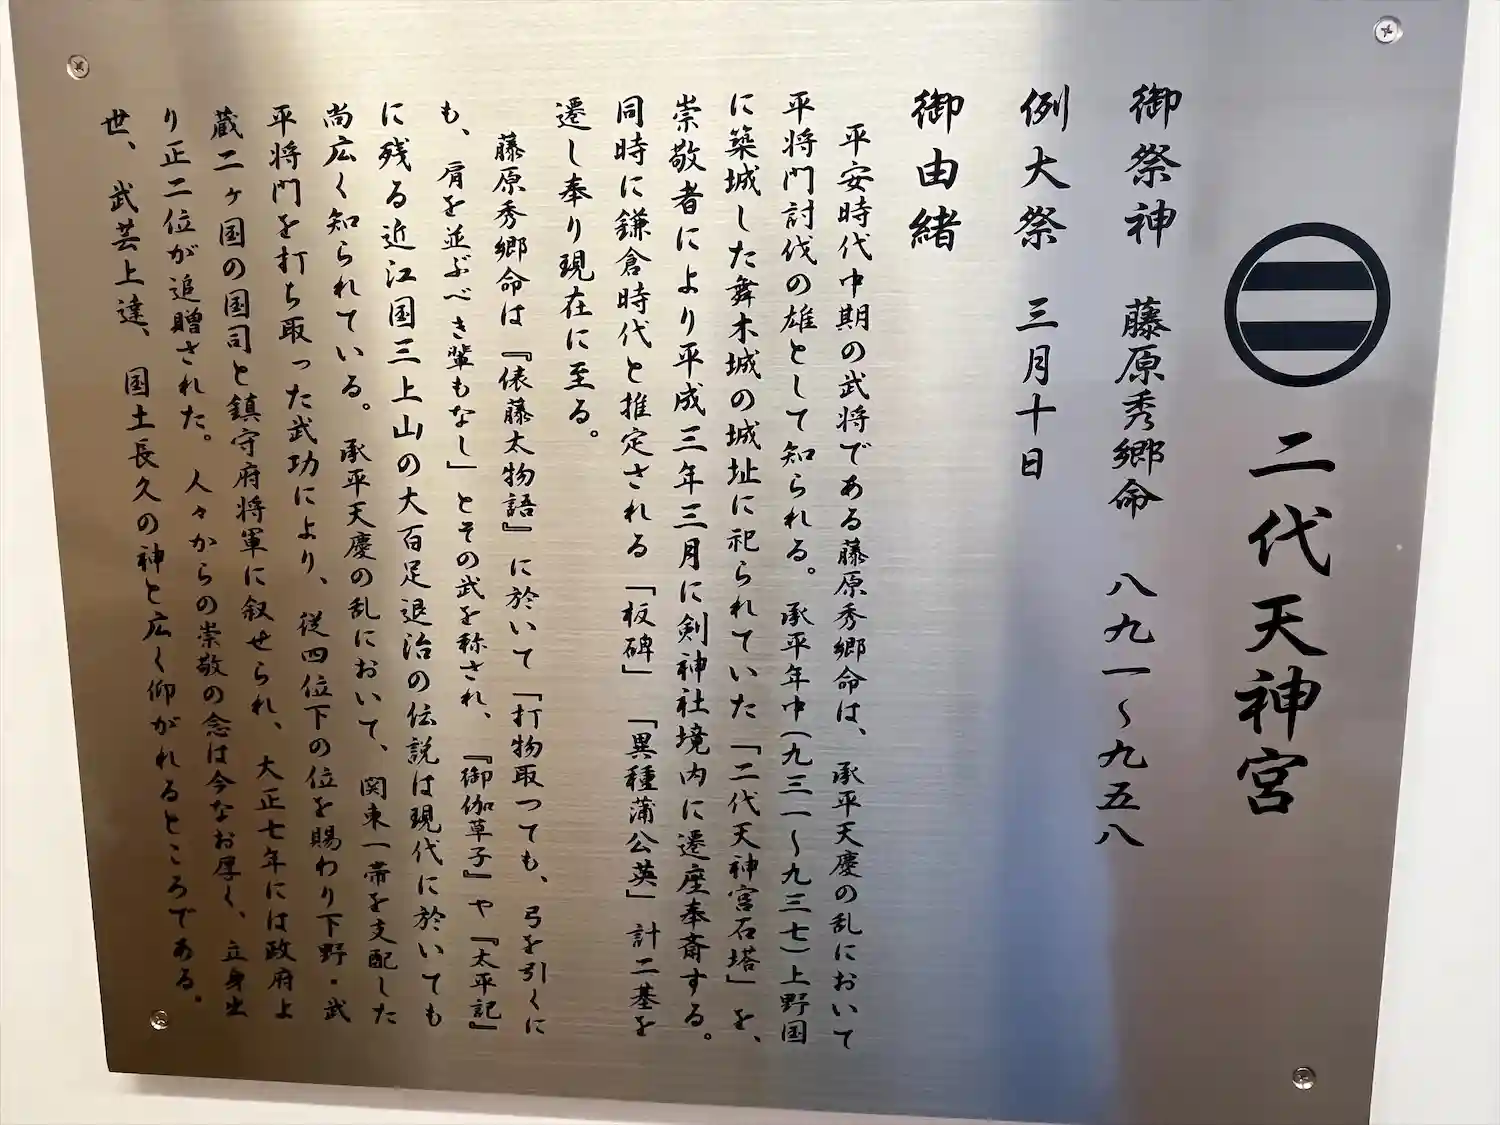 二代天神宮
御祭神 藤原秀郷命 八九一〜九五八
例大祭 三月十日
御由緒
平安時代中期の武将である藤原秀郷命は、承平天慶の乱において
平将門討伐の雄として知られる。承平年中(九三一〜九三七)上野国
に築城した舞木城の城址に祀られていた「二代天神宮石塔」を、
崇敬者により平成三年三月に剣神社境内に遷座奉斎する。
同時に鎌倉時代と推定される「板碑」「異種蒲公英」計二基を
遷し奉り現在に至る。
藤原秀郷命は『俵藤太物語』に於いて「打物取つても、弓を引くに
も、肩を並ぶべき輩もなし」とその武を称され、『御伽草子』や『太平記』
に残る近江国三上山の大百足退治の伝説は現代に於いても
尚広く知られている。承平天慶の乱において、関東一帯を支配した
平将門を打ち取った武功により、従四位下の位を賜わり下野・武
蔵二ヶ国の国司と鎮守府将軍に叙せられ、大正七年には政府よ
り正二位が追贈された。人々からの崇敬の念は今なお厚く、立身出
世、武芸上達、国土長久の神と広く仰がれるところである。